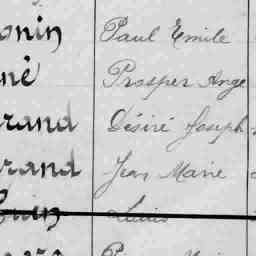 onin Paul Emile
né Prosper Ange
rand Désiré Joseph
rand Jean Marie
Louis